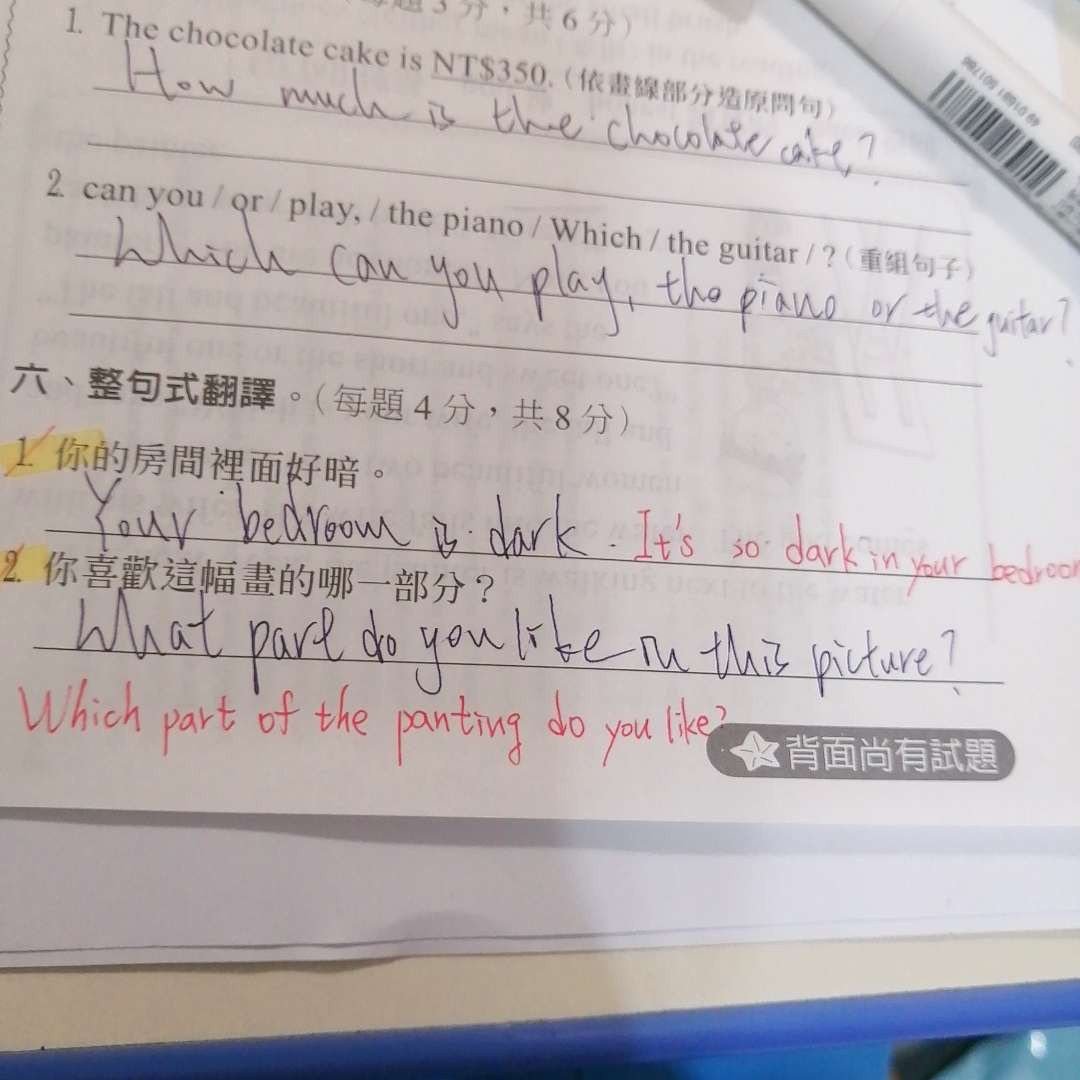 3 分，共 6 分）
1. The chocolate cake is NT$350.（依畫線部分造原問句）
How much is the chocolate cake?
2. can you / or / play, / the piano / Which / the guitar / ?（重組句子）
Which can you play, the piano or the guitar?
六、整句式翻譯。（每題 4 分，共 8 分）
1. 你的房間裡面好暗。
Your bedroom is dark. It's so dark in your bedroom
2. 你喜歡這幅畫的哪一部分？
What part do you like in this picture?
Which part of the panting do you like?
背面尚有試題